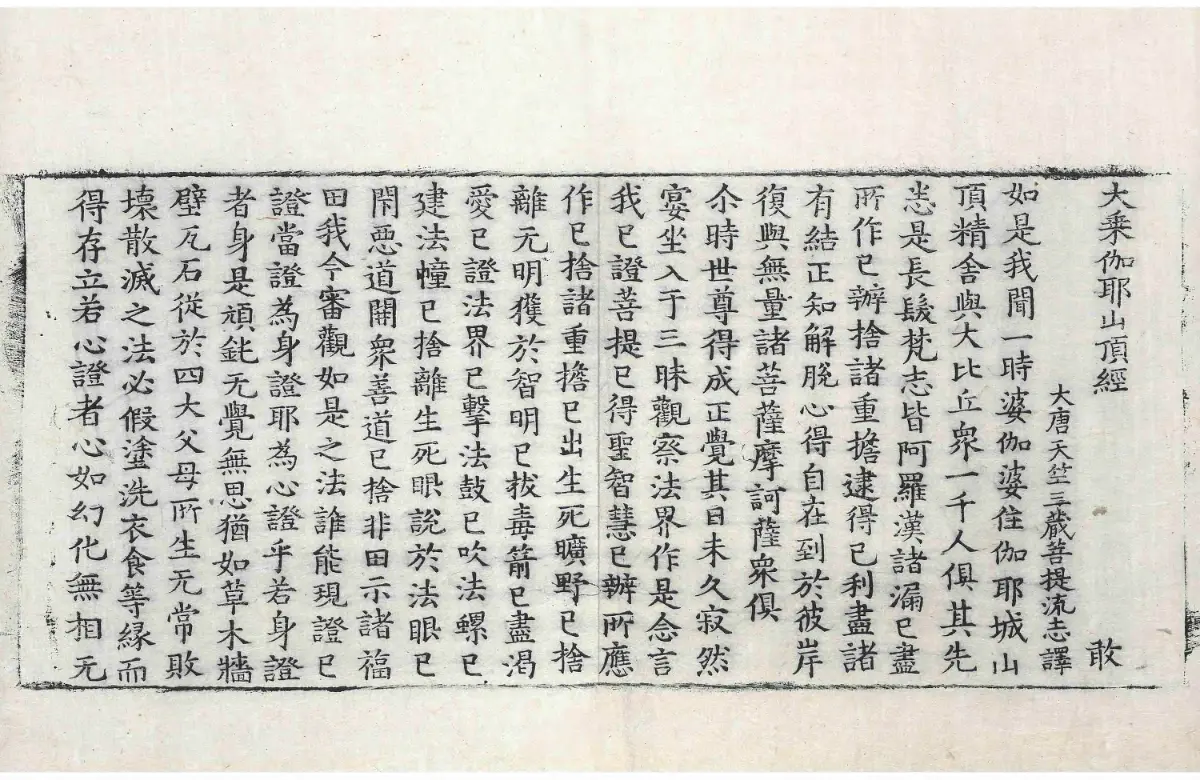 大乘伽耶山頂經 敢
大唐天竺三藏菩提流志譯
如是我聞一時婆伽婆住伽耶城山
頂精舍與大比丘眾一千人俱其先
悉是長髮梵志皆阿羅漢諸漏已盡
所作已辦捨諸重擔逮得已利盡諸
有結正知解脫心得自在到於彼岸
復與無量諸菩薩摩訶薩眾俱
尒時世尊得成正覺其日未久寂然
宴坐入于三昧觀察法界作是念言
我已證菩提已得聖智慧已辦所應
作已捨諸重擔已出生死曠野已捨
離无明獲於智明已拔毒箭已盡渴
愛已證法界已擊法鼓已吹法螺已
建法幢已捨離生死眼說於法眼已
閇惡道開眾善道已捨非田示諸福
田我今審觀如是之法誰能現證已
證當證為身證耶為心證乎若身證
者身是頑鈍无覺無思猶如草木牆
壁瓦石從於四大父母所生无常敗
壞散滅之法必假塗洗衣食等緣而
得存立若心證者心如幻化無相无